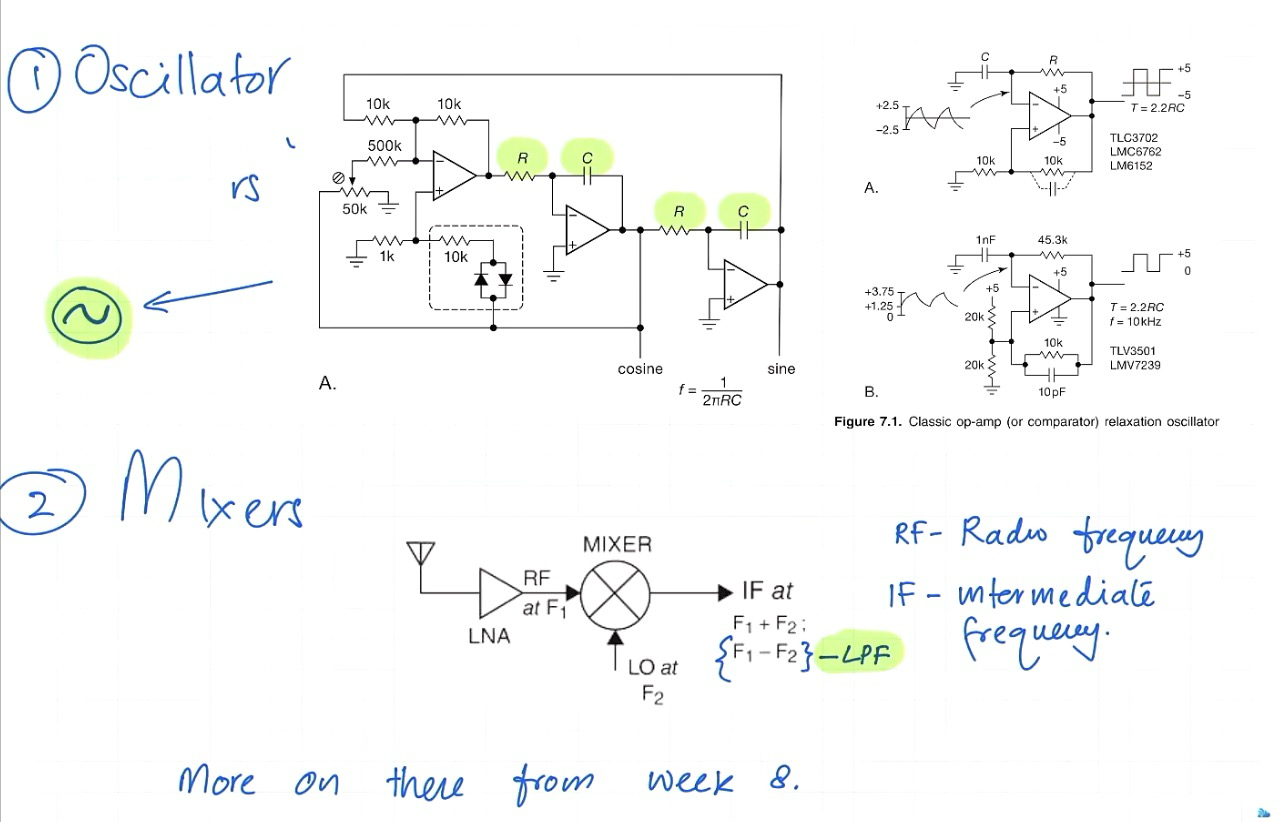 ① Oscillator
rs
10k
10k
500k
50k
1k
10k
R
C
R
C
−
+
−
+
−
+
cosine
sine
A.
f = 1/2πRC
C
R
+5
−5
T = 2.2RC
+2.5
−2.5
+5
−
+
−5
TLC3702
LMC6762
LM6152
10k
10k
A.
1nF
45.3k
+5
0
+3.75
+1.25
0
+5
+5
−
+
T = 2.2RC
f = 10kHz
20k
10k
TLV3501
LMV7239
20k
10pF
B.
Figure 7.1. Classic op-amp (or comparator) relaxation oscillator
② Mixers
MIXER
RF
at F1
LNA
LO at
F2
IF at
F1 + F2;
{F1 − F2} − LPF
RF - Radio frequency
IF - intermediate
frequency.
More on there from week 8.